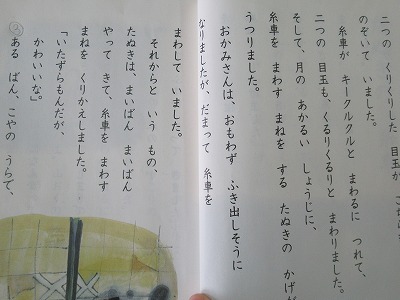 二つの くりくりした 目玉が
のぞいて いました。
糸車が キークルクルと まわるに つれて、
二つの 目玉も、くるりくるりと まわりました。
そして、月の あかるい しょうじに、
糸車を まわす まねを する たぬきの かげが
うつりました。
おかみさんは、おもわず ふき出しそうに
なりましたが、だまって 糸車を
まわして いました。
それからと いう もの、
たぬきは、まいばん まいばん
やって きて、糸車を まわす
まねを くりかえしました。
「いたずらもんだが、
かわいいな。」
③
ある ばん、こやの うらで、